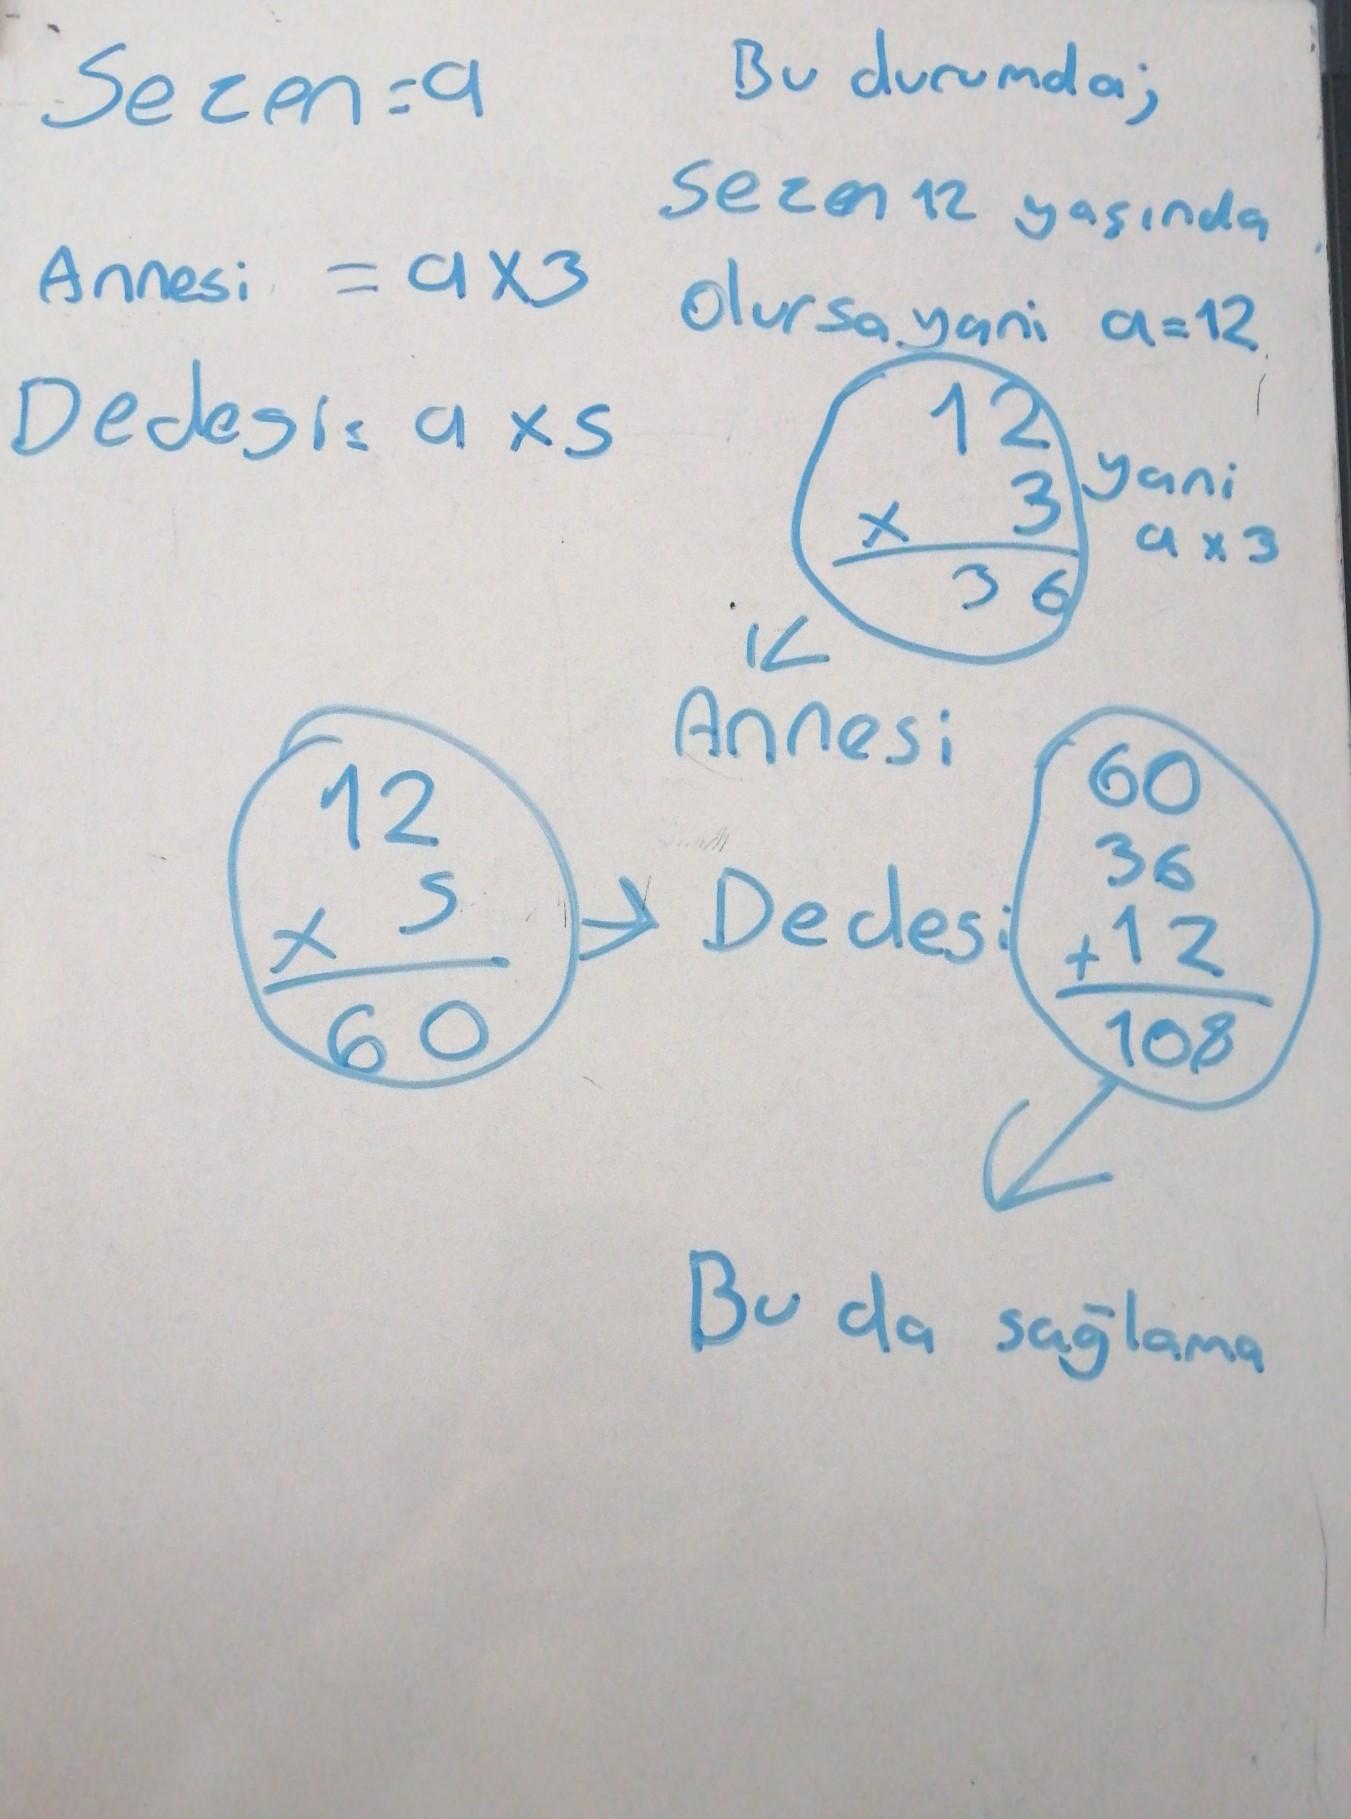 Sezen=a
Annesi = a x 3
Dedesi= a x 5
Bu durumda;
Sezen 12 yaşında
olursa yani a=12
12
x 3
36
yani
a x 3
Annesi
12
x 5
60
Dedesi
60
36
+12
108
Bu da sağlama